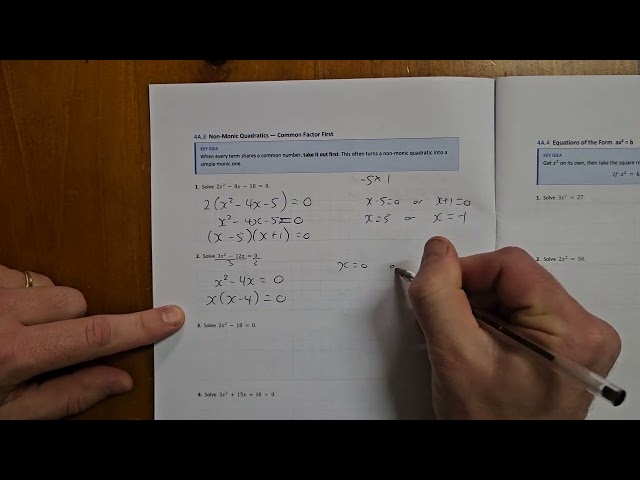 4A.3 Non-Monic Quadratics — Common Factor First
KEY IDEA
When every term shares a common number, take it out first. This often turns a non-monic quadratic into a
simple monic one.
1. Solve 2x² − 8x − 10 = 0.
-5 × 1
2(x² - 4x - 5) = 0
x² - 4x - 5 = 0
(x - 5)(x + 1) = 0
x-5=0 or x+1=0
x=5 or x=-1
2. Solve 3x² − 12x = 0
3 3
x² - 4x = 0
x(x - 4) = 0
x=0 o
3. Solve 2x² − 18 = 0.
4. Solve 3x² + 15x + 18 = 0.
4A.4 Equations of the Form ax² = b
KEY IDEA
Get x² on its own, then take the square
If x² = k
1. Solve 3x² = 27
2. Solve 2x² = 50.